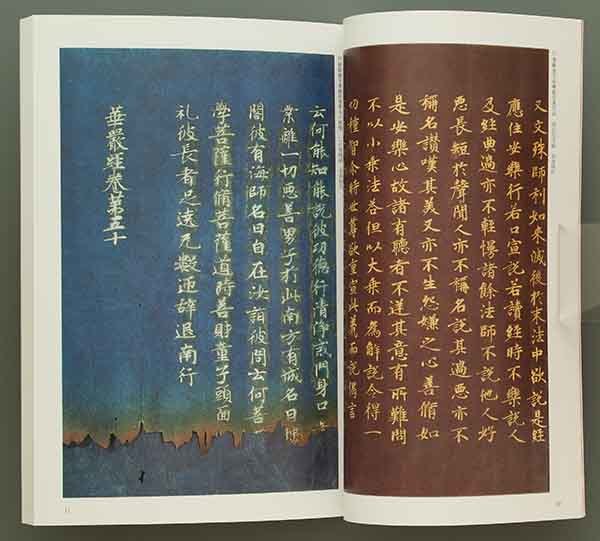 又文殊師利如來滅後於末法中欲說是經
應住安樂行若口宣說若讀經時不樂說人
及經典過亦不輕慢諸餘法師不說他人好
惡長短於聲聞人亦不稱名說其過惡亦不
稱名讚嘆其美又亦不生怨嫌之心善脩如
是安樂心故諸有聽者不逆其意有所難問
不以小乘法荅但以大乘而為解說令得一
切種智尒時世尊欲重宣此義而說偈言
云何能知能說彼功德行清淨戒門身口
業離一切惡善男子於此南方有城名曰
閣彼有海師名曰自在汝詣彼問云何菩
學菩薩行脩菩薩道時善財童子頭面
礼彼長者足遶无數迊辞退南行
華嚴經卷第五十